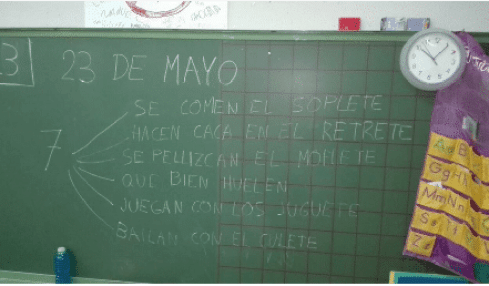 3
23 DE MAYO
7
SE COMEN EL SOPLETE
HACEN CACA EN EL RETRETE
SE PELLIZCAN EL MOFLETE
QUE BIEN HUELEN
JUEGAN CON LOS JUGUETE
BAILAN CON EL CULETE
Aa B
Gg H
Mm Nn
S
Z